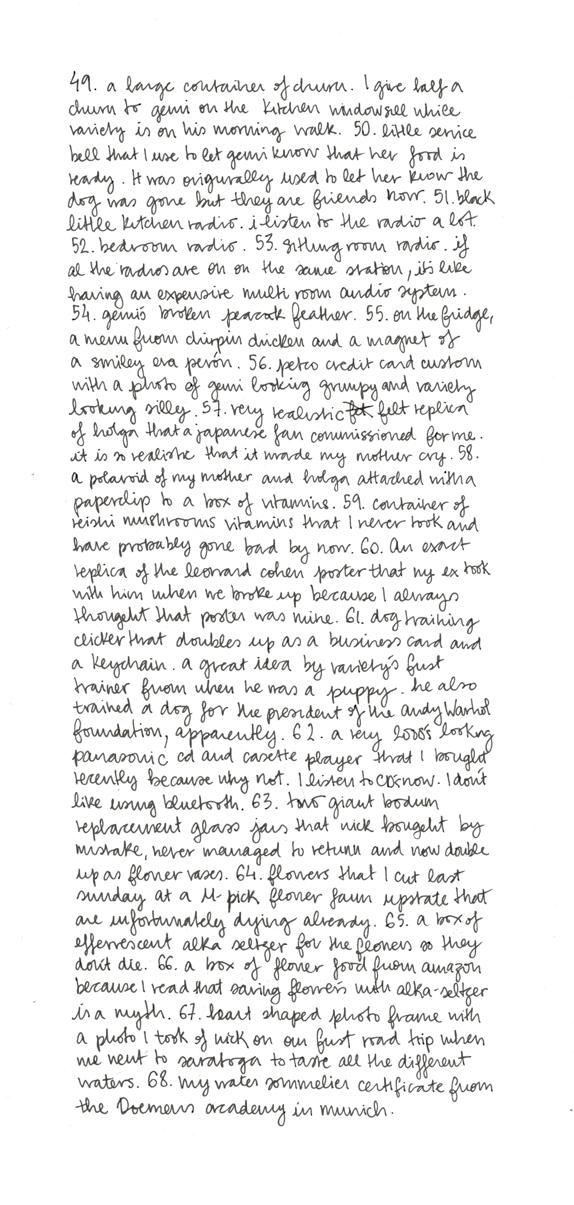 49. a large container of churu. I give half a
churu to gemi on the kitchen windowsill while
variety is on his morning walk. 50. little service
bell that I use to let gemi know that her food is
ready. It was originally used to let her know the
dog was gone but they are friends now. 51. black
little kitchen radio. i listen to the radio a lot.
52. bedroom radio. 53. sitting room radio. if
al the radios are on on the same station, it's like
having an expensive multi room audio system.
54. gemi's broken peacock feather. 55. on the fridge,
a menu from chirpin chicken and a magnet of
a smiley eva perón. 56. petco credit card custom
with a photo of gemi looking grumpy and variety
looking silly. 57. very realistic felt replica
of holga that a japanese fan commissioned for me.
it is so realistic that it made my mother cry. 58.
a polaroid of my mother and holga attached with a
paperclip to a box of vitamins. 59. container of
reishi mushrooms vitamins that I never took and
have probably gone bad by now. 60. An exact
replica of the leonard cohen poster that my ex took
with him when we broke up because I always
thought that poster was mine. 61. dog training
clicker that doubles up as a business card and
a keychain. a great idea by variety's first
trainer from when he was a puppy. he also
trained a dog for the president of the andy Warhol
foundation, apparently. 62. a very 2000's looking
panasonic cd and casette player that I bought
recently because why not. I listen to CDs now. I don't
like using bluetooth. 63. two giant bodum
replacement glass jars that nick bought by
mistake, never managed to return and now double
up as flower vases. 64. flowers that I cut last
sunday at a U-pick flower farm upstate that
are unfortunately dying already. 65. a box of
effervescent alka seltzer for the flowers so they
don't die. 66. a box of flower food from amazon
because I read that saving flowers with alka-seltzer
is a myth. 67. heart shaped photo frame with
a photo I took of nick on our first road trip when
we went to saratoga to taste all the different
waters. 68. my water sommelier certificate from
the Doemens academy in munich.